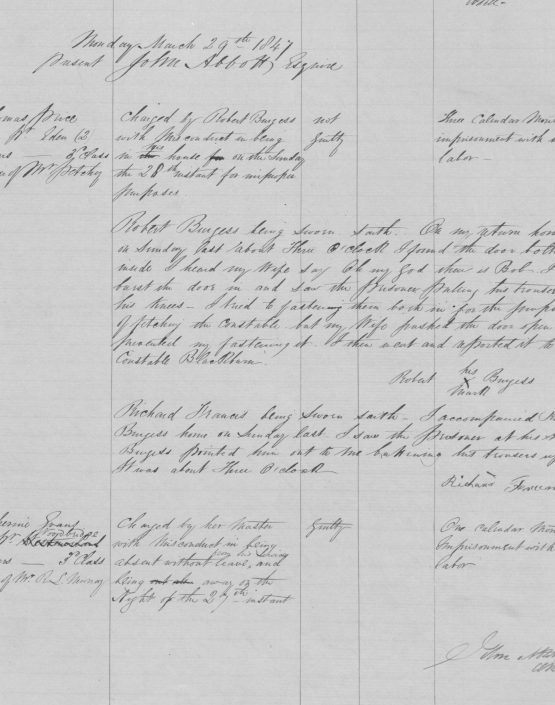 Monday March 29th 1847
present John Abbott Esquire
Charged by Robert Burgess
with Misconduct in being
in his house on the Sunday
the 28th instant for improper
purposes
not
Guilty
Three Calendar
imprisonment with
labor —
Eden (2
3d Class
of Mr Petchey
Robert Burgess being sworn saith. On my return
on Sunday last about Three O'Clock I found the door
inside I heard my Wife say Oh my god there is Bob. I
burst the door in and saw the Prisoner Pulling his
his knees — I tried to fastening them back in for the
of fetching the Constable but my Wife pushed the door open
prevented my fastening it. I then went and reported it to
Constable Blackburn.
Robert his X Mark Burgess
Richard Francis being sworn saith — I accompanied
Burgess home on Sunday last. I saw the Prisoner at his
Burgess pointed him out to me buttoning his trousers
It was about Three O'Clock
Richard
Evans
Woodbridge
3d Class
of Mr R. L. Murray
Charged by her Master
with Misconduct in being
absent without leave, and
being away on the
Night of the 27th instant
Guilty
One calendar
Imprisonment with
labor
John